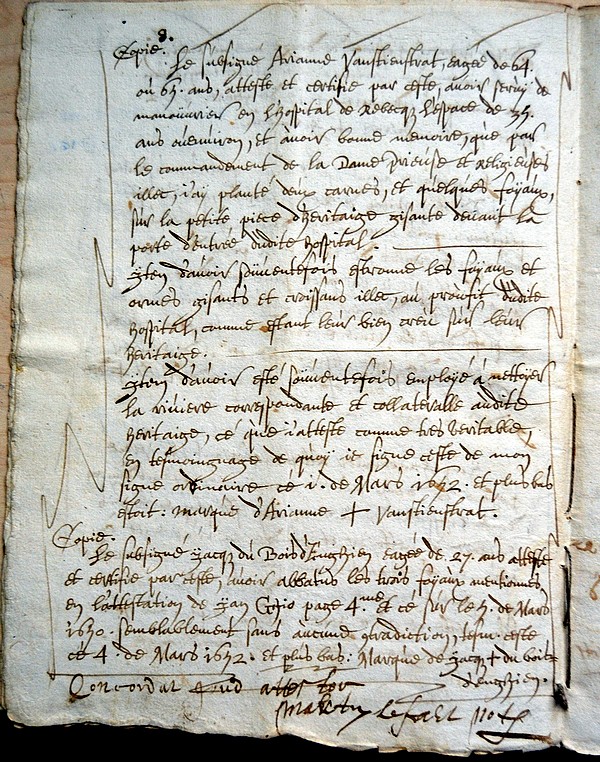 8.
Copie.
Le subsigné Arianne Vanstienstrat, eagée de 64.
ou 65. ans, atteste et certifie par ceste, avoir servy de
manouvrier en l'hospital de Rebecq l'espace de 35.
ans ou environ, et avoir bonne memoire, que par
le commandement de la Dame Prieuse et Religieuses
illec, j'ay planté deux carnés, et quelques foyaux,
sur la petite piece d'heritaige gisante devant la
porte d'entrée dudite hospital.
Item d'avoir souventefois estronné les foyaux et
ormes gisants et croissans illec, au prouffit dudite
hospital, comme estant leur bien creu sur leur
heritaige.
Item d'avoir esté souventefois employé a nettoyer
la riviere correspondante et collateralle audite
heritaige, ce que j'atteste comme tres veritable,
en tesmoingnage de quoy je signe ceste de mon
signe ordinaire ce 1. de Mars 1652. et plus bas
estoit: marque d'Arianne + Vanstienstrat.
Copie.
Le subsigné Jacq du Bois d'Enghien eagée de 27. ans atteste
et certifie par ceste, avoir abbatus les trois foyaux mentionnes
en l'attestation de Jan page 4.me et ce sur le 5. de Mars
1650. semblablement sans aucune contradiction, tesm. ceste
ce 4. de Mars 1652. et plus bas: Marque de Jacq + du bois
d'enghien.
Concordat quod attestor
not